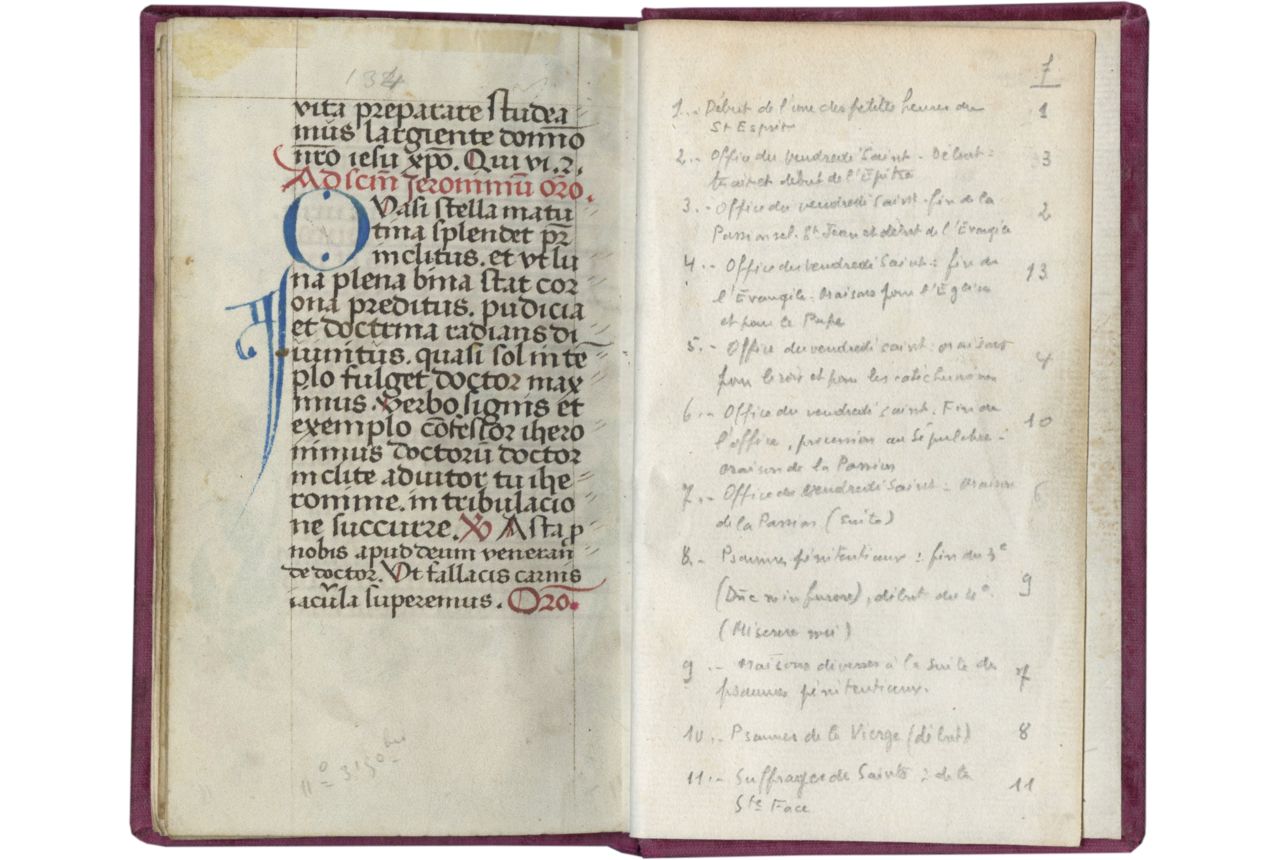 134
vita preparare studea
mus largiente domīo
nr̄o iesu xpo. Qui vi. 2.
Ad scm̄ Jeronimū oro.
QVasi stella matu
tina splendet pr̄
inclitus. et vt lu
na plena bina stat cor
ona preditus. pudicia
et doctrina radians di
uinitus. quasi sol in te
plo fulget doctor max
imus. Verbo signis et
exemplo cōfessor ihero
nimus doctorū doctor
inclite adiutor tu ihe
ronime. in tribulacio
ne succurre. Ꟃ Asta ꝓ
nobis apud deum veneran
de doctor. Vt fallacis carnis
iacula superemus. Oro.
nº 3150 bis
1
1.- Début de l'une des petites heures du 1
St Esprit
2.- Office du vendredi Saint - Début : 3
trait et début de l'Epitre
3.- Office du vendredi Saint - fin de la 2
Passion sel. St Jean et début de l'Evangile
4.- Office du vendredi Saint : fin de 13
l'Evangile. Oraisons pour l'Eglise
et pour le Pape
5.- Office du vendredi saint : oraisons 4
pour le roi et pour les catéchumènes
6.- Office du vendredi saint. Fin de 10
l'office, procession au Sépulchre -
oraison de la Passion
7.- Office du Vendredi Saint : oraison 6
de la Passion (suite)
8.- Psaumes pénitentiaux : fin du 3e
(Dñe ne in furore), début du 4e 9
(Miserere mei)
9.- Oraisons diverses à la suite des 7
psaumes pénitentiaux.
10.- Psaumes de la Vierge (début) 8
11.- Suffrages de Saints : de la 11
Ste Face